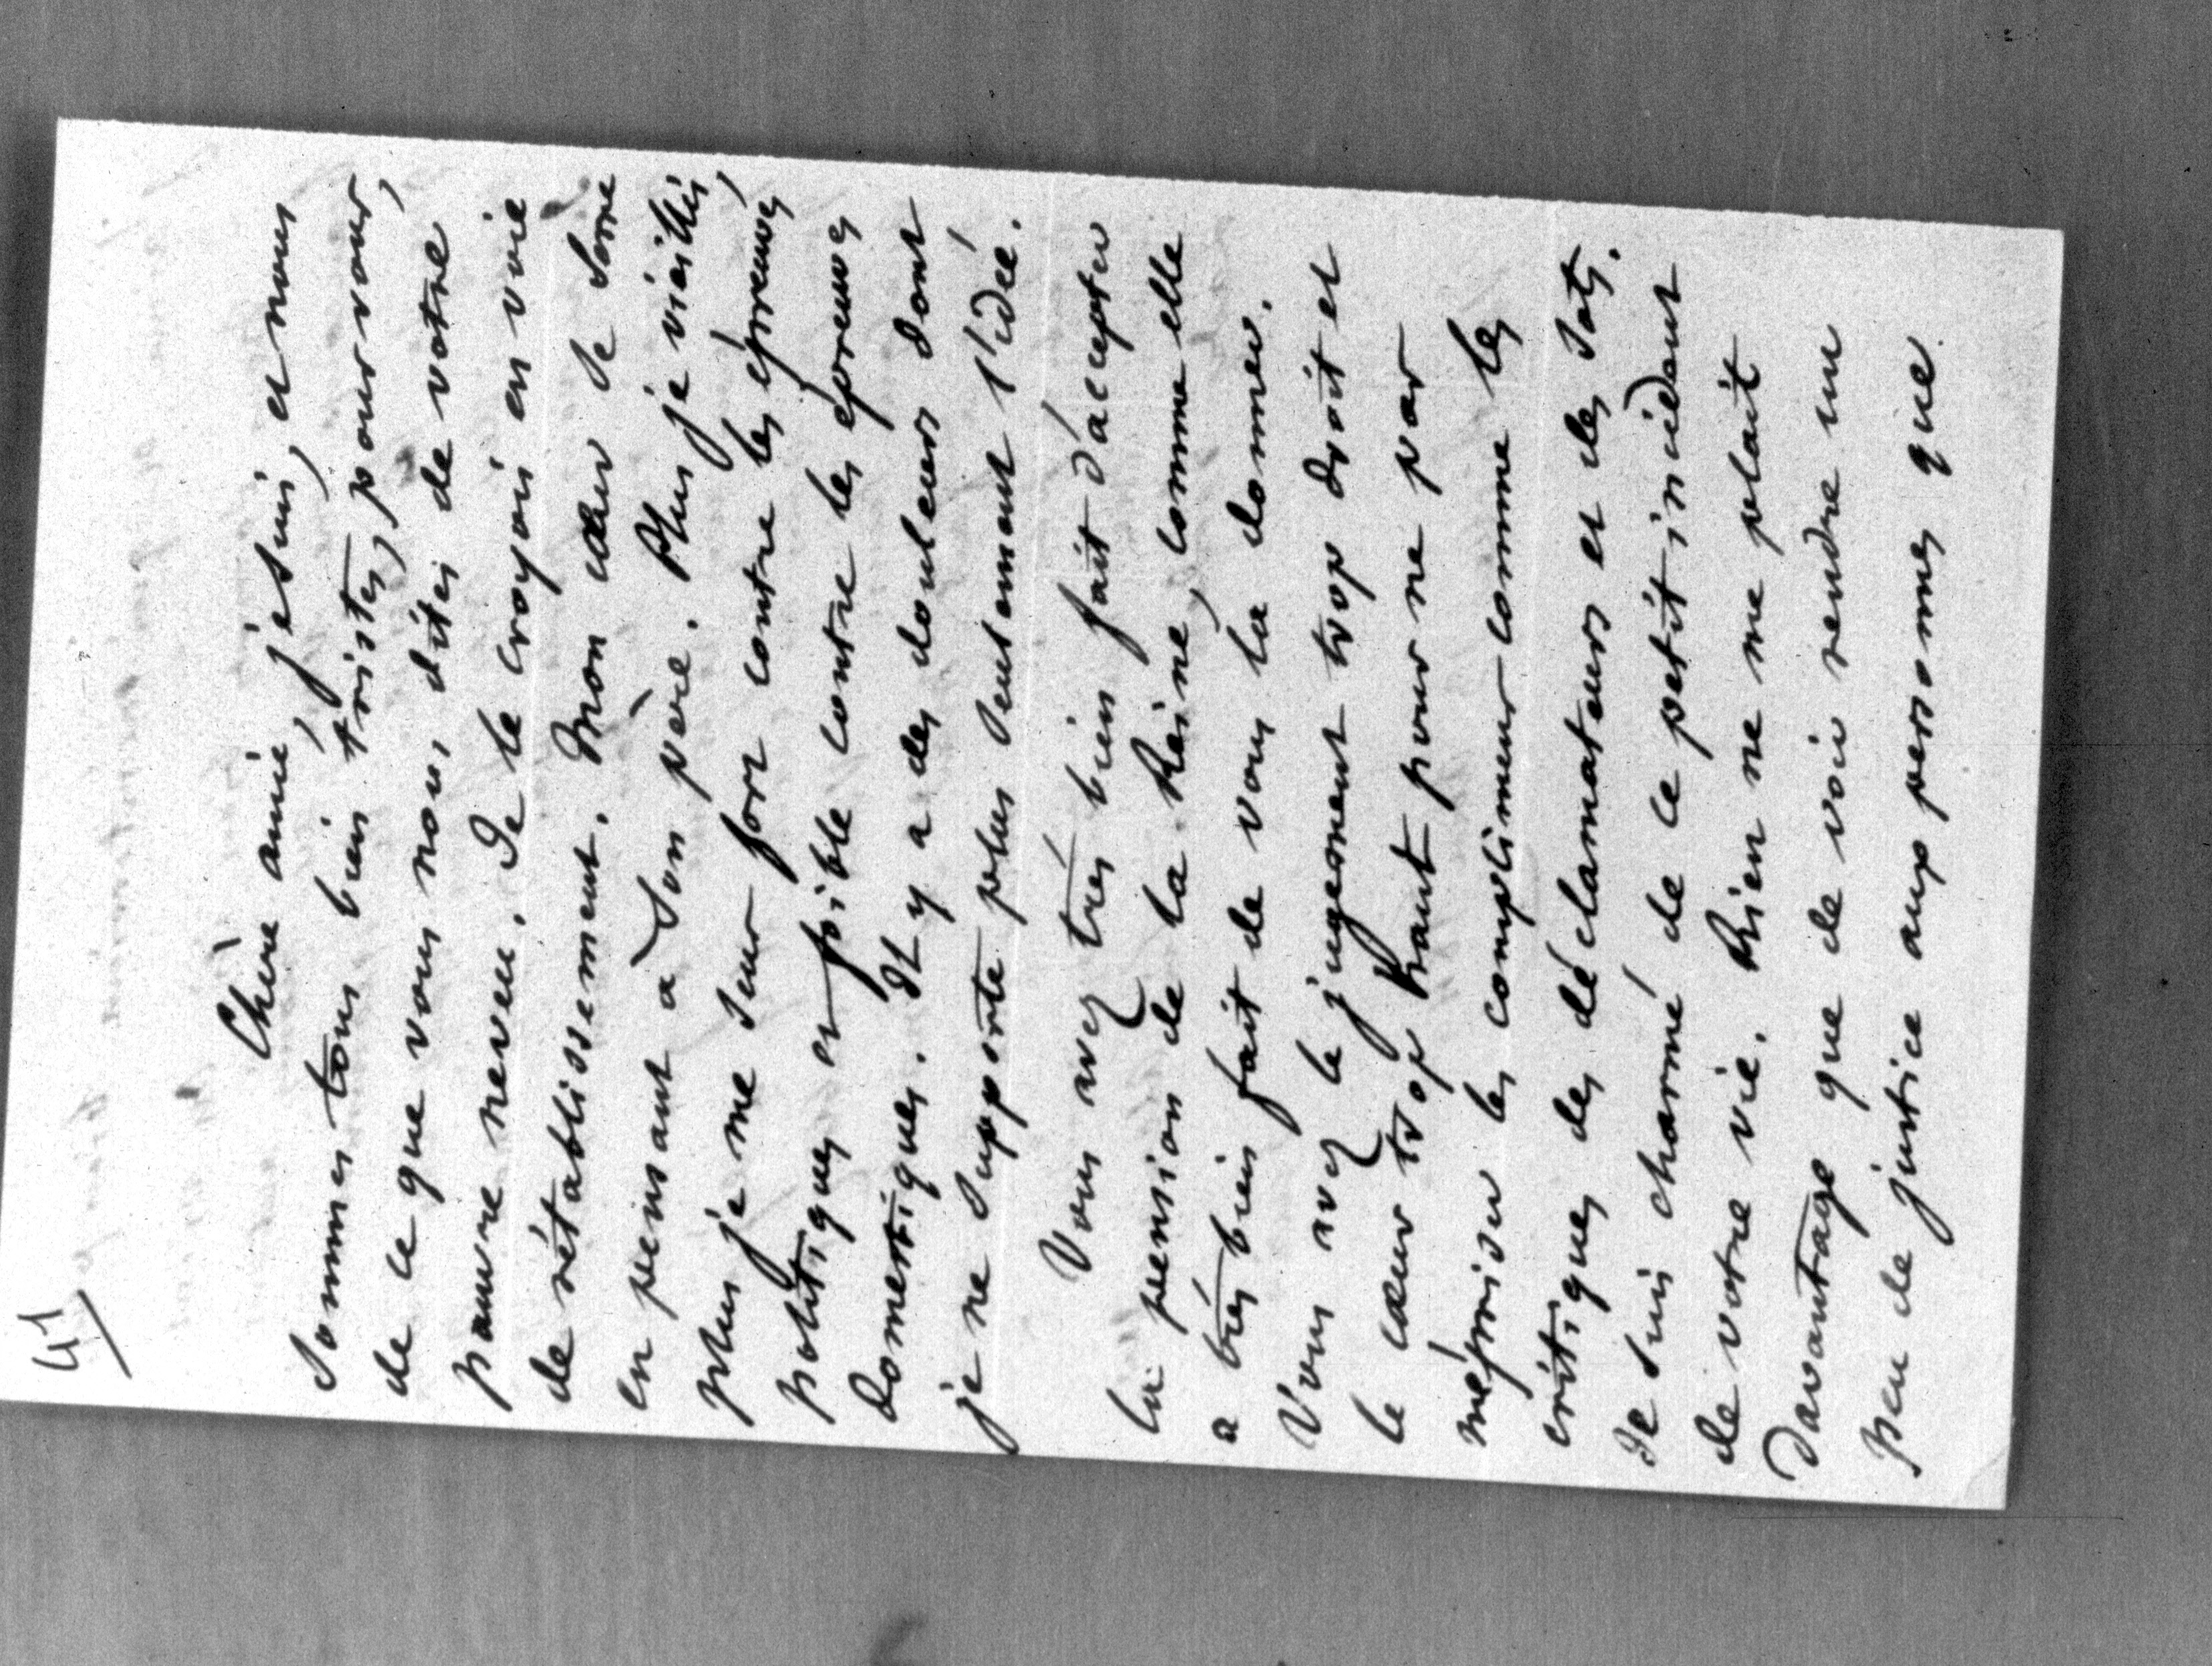 41
Chère amie, je suis, et nous
sommes tous bien tristes, pour vous,
de ce que vous nous dites de votre
pauvre neveu. Je le croyais en voie
de rétablissement. Mon cœur se serre
en pensant à son père. Plus je vieillis,
plus je me sens fort contre les épreuves
politiques et foible contre les épreuves
domestiques. Il y a des douleurs dont
je ne supporte plus seulement l'idée.
Vous avez très bien fait d'accepter
la pension de la Reine, comme elle
a très bien fait de vous la donner.
Vous avez le jugement trop droit et
le cœur trop haut pour ne pas
mépriser les complimens comme les
critiques des déclamateurs et des sots.
Je suis charmé de ce petit incident
de votre vie. Rien ne me plait
davantage que de voir rendre un
peu de justice aux personnes que